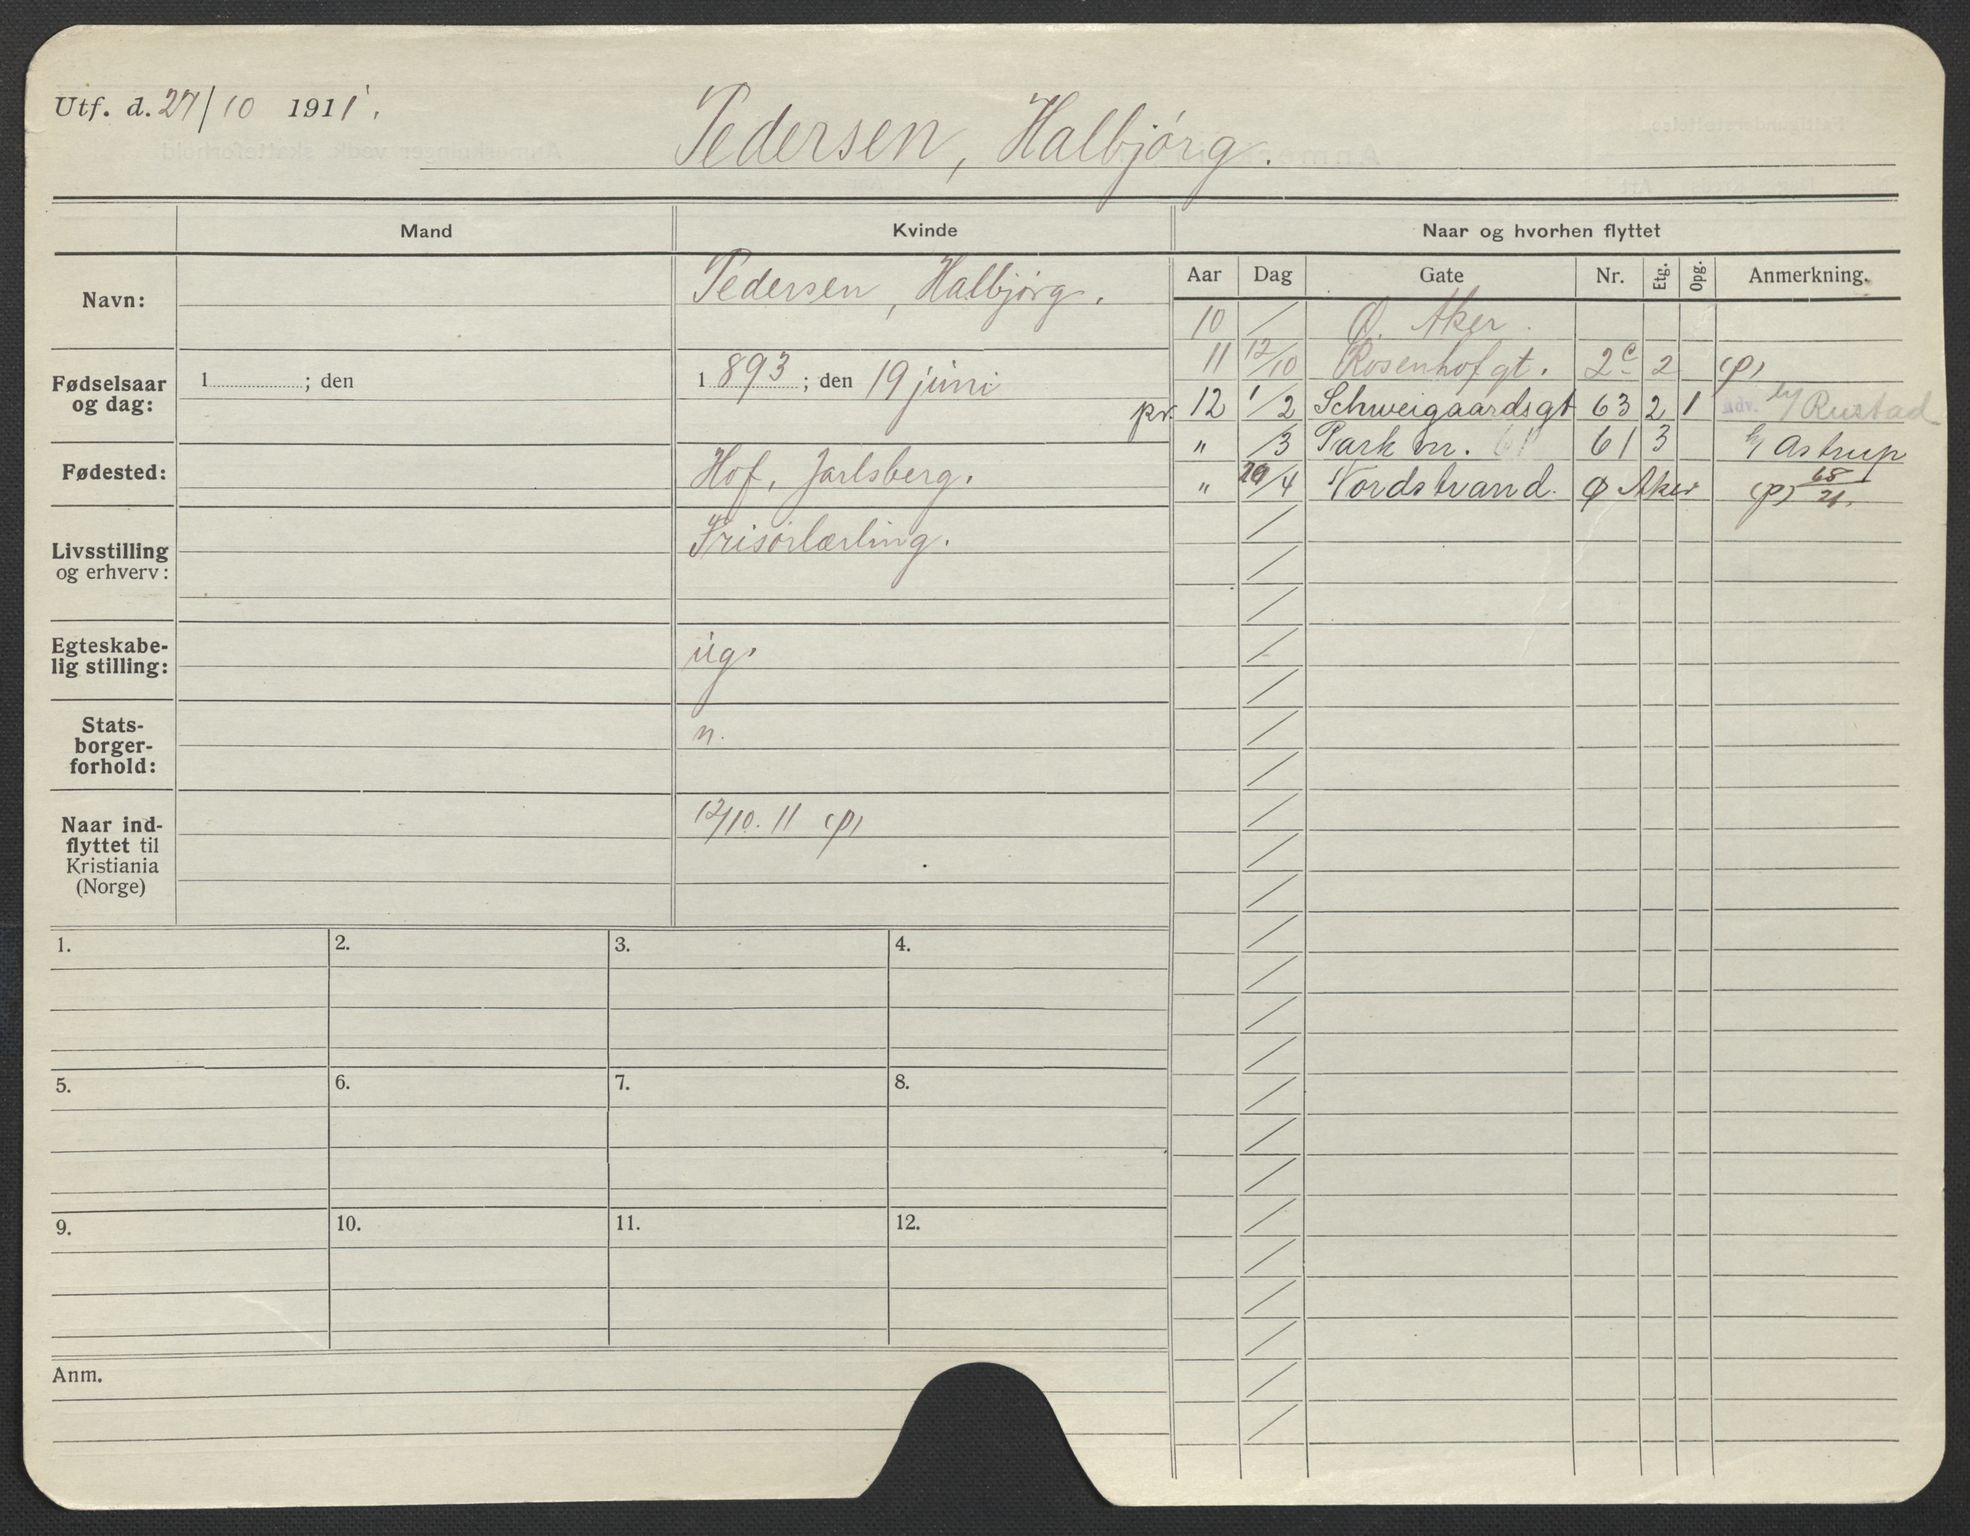 Utf. d. 27/10 1911.
Pedersen, Halbjørg.
Mand
Kvinde
Naar og hvorhen flyttet
Navn:
Pedersen, Halbjørg.
Fødselsaar og dag:
1 ; den
1 893 ; den 19 juni
Fødested:
Hof, Jarlsberg.
Livsstilling og erhverv:
Frisørlærling.
Egteskabe-
lig stilling:
ug.
Stats-
borger-
forhold:
n.
Naar ind-
flyttet til
Kristiania
(Norge)
12/10. 11 (p)
Aar Dag Gate Nr. Etg. Opg. Anmerkning.
10 / Ø. Aker.
11 12/10 Rosenhofgt. 2c 2 (p)
pr. 12 1/2 Schweigaardsgt 63 2 1 Adv. h/ Rustad
" /3 Park vn. 61 61 3 h/ Astrup
" /4 Nordstrand. Ø Aker (p) 68/21.
1. 2. 3. 4.
5. 6. 7. 8.
9. 10. 11. 12.
Anm.